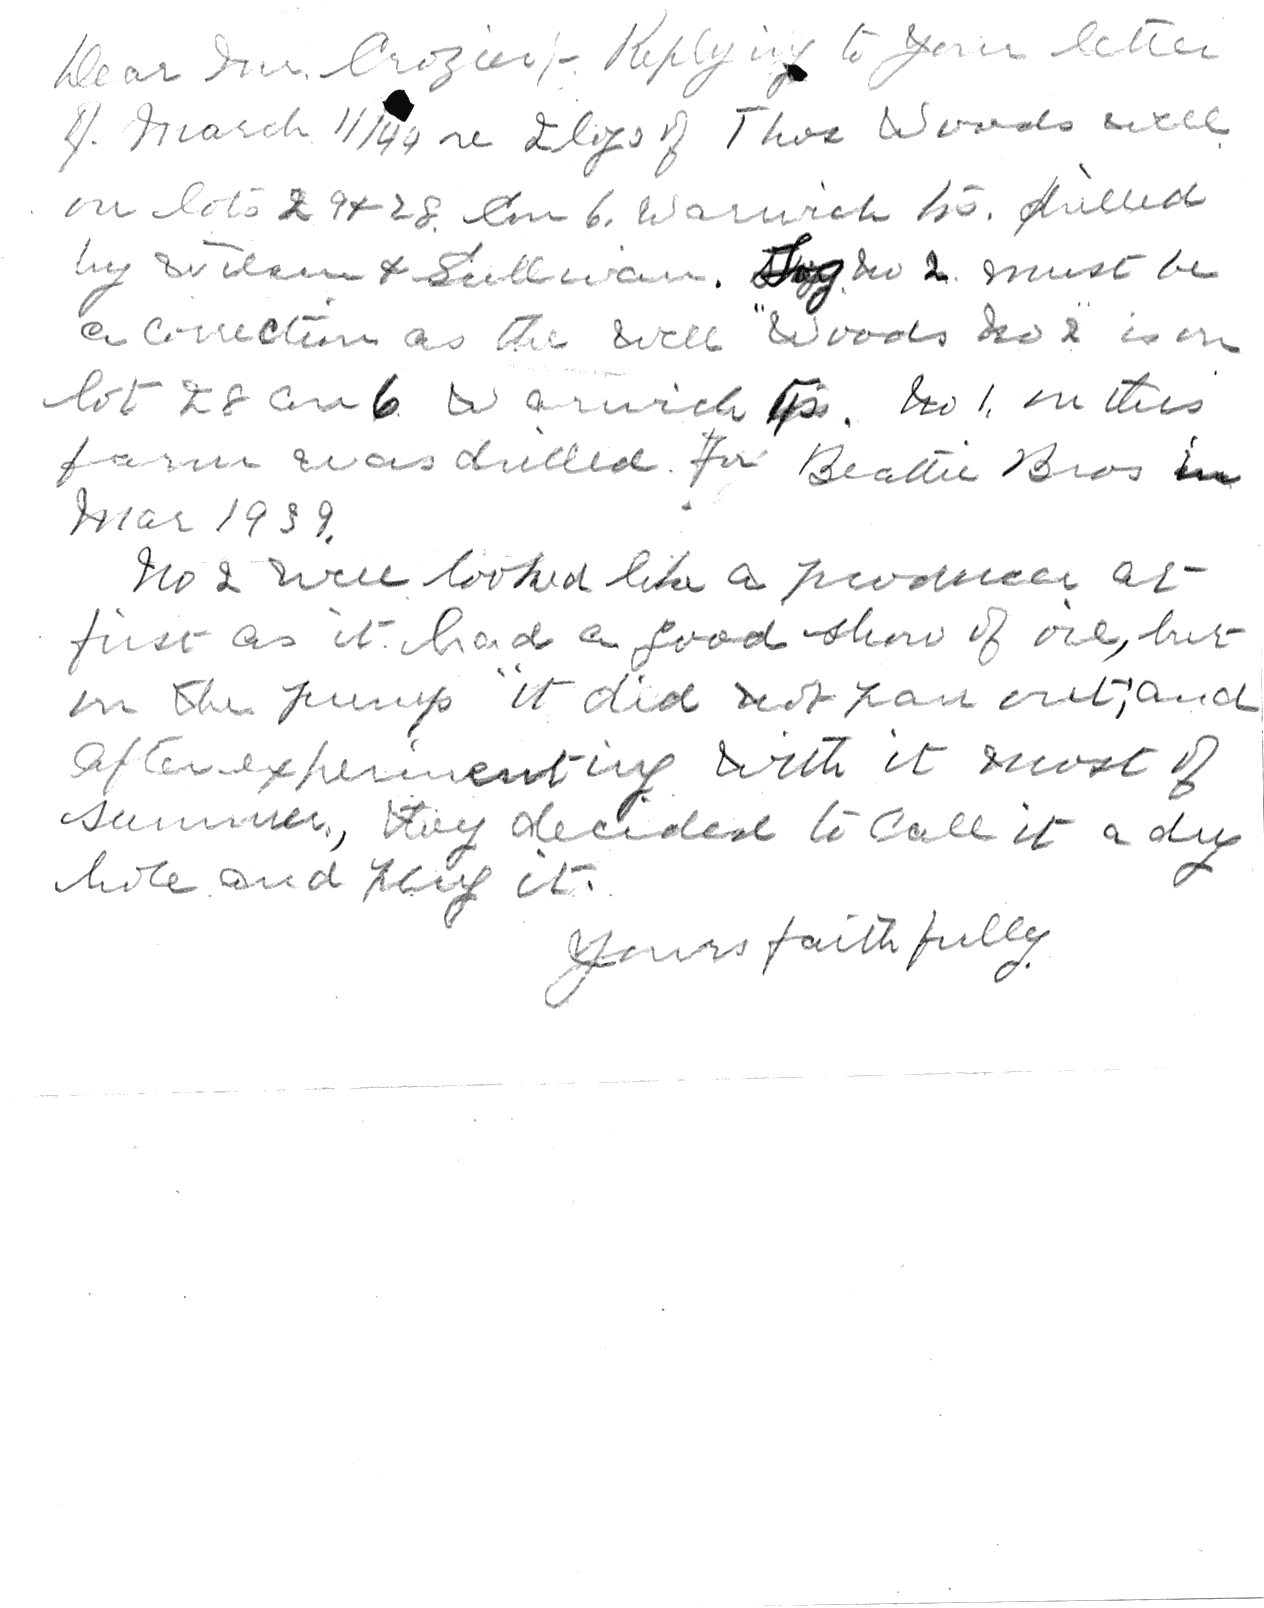 Dear Mr. Crozier/-. Replying to your letter
of. March 11/44 re 2 logs of Thos Woods well
on lots 29 & 28. Con 6. Warwick Tp. drilled
by Wilson & Sullivan. Log No 2. must be
a correction as the well "Woods No 2" is on
lot 28 Con 6 Warwick Tp. No 1. on this
farm was drilled for Beattie Bros in
Mar 1939.
No 2 well looked like a producer at
first as it had a good show of oil, but
on the pump "it did not pan out", and
after experimenting with it most of
summer, they decided to call it a dry
hole and plug it.
Yours faithfully.